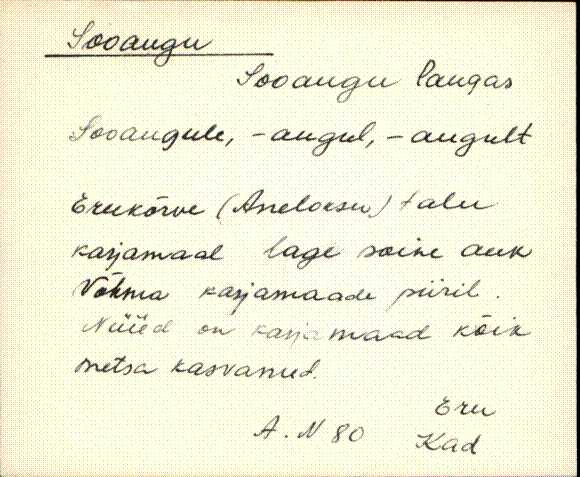 Sooaugu
Sooaugu laugas
Sooaugule, -augul, -augult
Erukõrve (Aneloksu) talu
karjamaal lage soine auk
Võhma karjamaade piiril.
Nüüd on karjamaad kõik
metsa kasvanud.
Eru
A. N 80 Kad